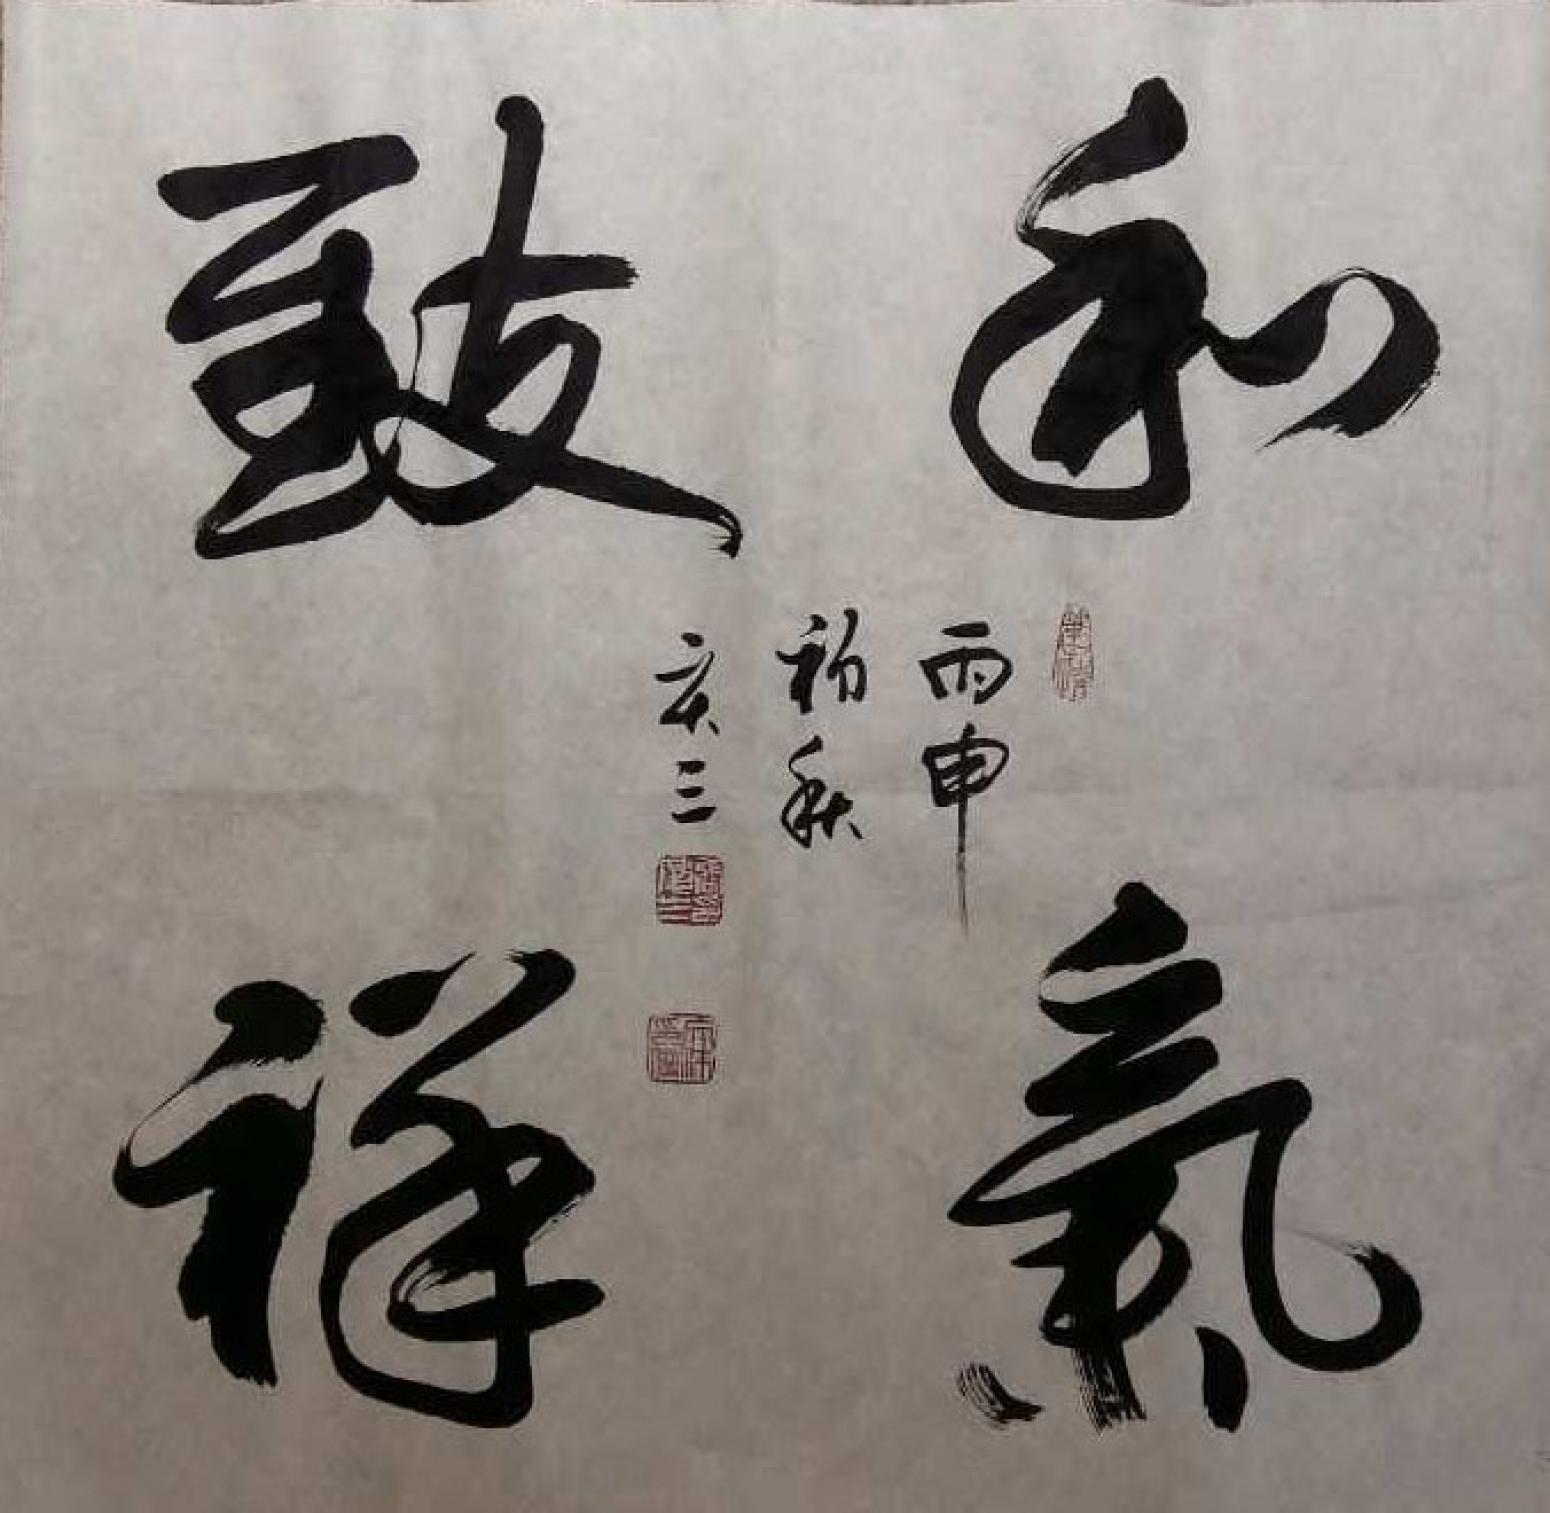 和氣
致祥
丙申
初秋
庆三